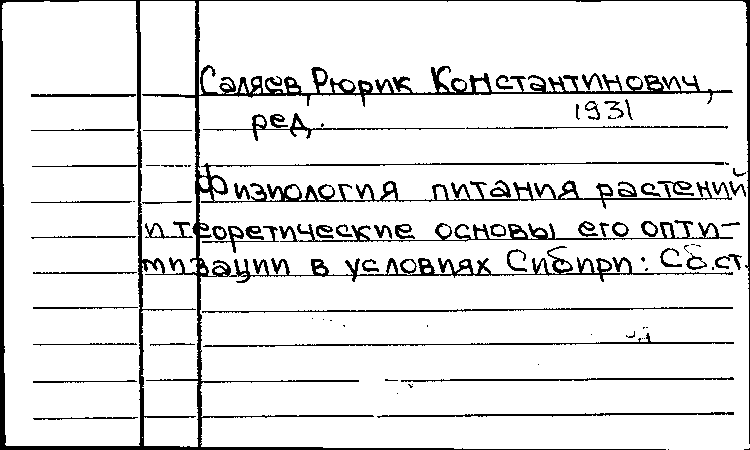 Саляев, Рюрик Константинович,
1931
ред.
Физиология питания растений
и теоретические основы его опти-
мизации в условиях Сибири: Сб.ст.